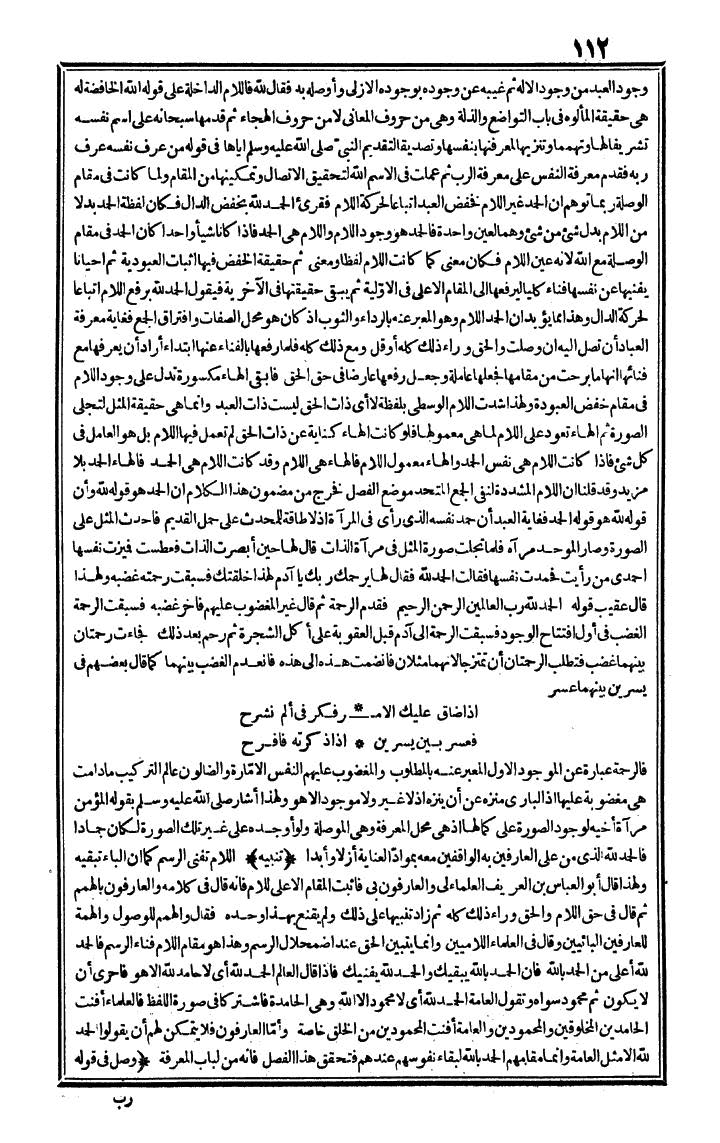 ١١٢
وجود العبد من وجود الاله ثم غيبه عن وجوده بوجوده الازلى وأوصله به فقال لله فاللام الداخلة على قوله الله الخافضة له
هى حقيقة المألوه فى باب التواضع والذلة وهى من حروف المعانى لا من حروف الهجاء ثم قدمها سبحانه على اسم نفسه
تشريفا لها وتهمما وتنزيها لمعرفتها بنفسها وتصديقا لتقديم النبى صلى الله عليه وسلم اياها فى قوله من عرف نفسه عرف
ربه فقدم معرفة النفس على معرفة الرب ثم عملت فى الاسم الله لتحقيق الاتصال وتمكينها من المقام ولما كانت فى مقام
الوصلة ربما توهم ان الحمد غير اللام فخفض العبد اتباعا لحركة اللام فقرئ الحمد لله بخفض الدال فكان لفظة الحمد بدلا
من اللام بدل شئ من شئ وهما لعين واحدة فالحمد هو وجود اللام واللام هى الحمد فاذا كانا شيأ واحدا كان الحمد فى مقام
الوصلة مع الله لانه عين اللام فكان معنى كما كانت اللام لفظا ومعنى ثم حقيقة الخفض فيها اثبات العبودية ثم احيانا
يفنيها عن نفسها فناء كليا ليرفعها الى المقام الاعلى فى الاولية ثم يبقى حقيقتها فى الآخرية فيقول الحمد لله برفع اللام اتباعا
لحركة الدال وهذا مما يؤيد ان الحمد اللام وهو المعبر عنه بالرداء والثوب اذ كان هو محل الصفات وافتراق الجمع فغاية معرفة
العباد أن تصل اليه ان وصلت والحق وراء ذلك كله أو قل ومع ذلك كله فلما رفعها بالفناء عنها ابتداء أراد أن يعرفها مع
فنائها انها ما برحت من مقامها فجعلها عاملة وجعل رفعها عارضا فى حق الحق فابقى الهاء مكسورة تدل على وجود اللام
فى مقام خفض العبودة ولهذا شدت اللام الوسطى بلفظة لا أى ذات الحق ليست ذات العبد وانما هى حقيقة المثل لتجلى
الصورة ثم الهاء تعود على اللام لما هى معمولها فلو كانت الهاء كناية عن ذات الحق لم تعمل فيها اللام بل هو العامل فى
كل شئ فاذا كانت اللام هى نفس الحمد والهاء معمول اللام فالهاء هى اللام وقد كانت اللام هى الحمد فالهاء الحمد بلا
مزيد وقد قلنا ان اللام المشددة لنفى الجمع المتحد موضع الفصل فخرج من مضمون هذا الكلام ان الحمد هو قوله لله وأن
قوله لله هو قوله الحمد فغاية العبد أن حمد نفسه الذى رأى فى المرآة اذ لا طاقة للمحدث على حمل القديم فاحدث المثل على
الصورة وصار الموحد مرآة فلما تجلت صورة المثل فى مرآة الذات قال لها حين أبصرت الذات فعطست فيزت نفسها
احمدى من رأيت فحمدت نفسها فقالت الحمد لله فقال لها يرحمك ربك يا آدم لهذا خلقتك فسبقت رحمته غضبه ولهذا
قال عقيب قوله الحمد لله رب العالمين الرحمن الرحيم فقدم الرحمة ثم قال غير المغضوب عليهم فاخر غضبه فسبقت الرحمة
الغضب فى أول افتتاح الوجود فسبقت الرحمة الى آدم قبل العقوبة على أكل الشجرة ثم رحم بعد ذلك فجاءت رحمتان
بينهما غضب فتطلب الرحمتان أن تمتزجا لانهما مثلان فانضمت هذه الى هذه فانعدم الغضب بينهما كما قال بعضهم فى
يسرين بينهما عسر
اذا ضاق عليك الامـ * ـر فكر فى ألم نشرح
فعسر بين يسرين * اذا ذكرته فافرح
فالرحمة عبارة عن الموجود الاول المعبر عنه بالمطلوب والمغضوب عليهم النفس الامارة والضالون عالم التركيب ما دامت
هى مغضوبة عليها اذ البارى منزه عن أن ينزه اذ لا غير ولا موجود الا هو ولهذا أشار صلى الله عليه وسلم بقوله المؤمن
مرآة أخيه لوجود الصورة على كمالها اذ هى محل المعرفة وهى الموصلة ولو أوجده على غير تلك الصورة لكان جمادا
فالحمد لله الذى من على العارفين به الواقفين معه بموادّ العناية أزلا وأبدا ﴿تنبيه﴾ اللام تفنى الرسم كما ان الباء تبقيه
ولهذا قال أبو العباس بن العريف العلماء لى والعارفون بى فاثبت المقام الاعلى للام فانه قال فى كلامه والعارفون بالهمم
ثم قال فى حق اللام والحق وراء ذلك كله ثم زاد تنبيها على ذلك ولم يقنع بهذا وحده فقال والهمم للوصول والهمة
للعارفين البائيين وقال فى العلماء اللاميين وانما يتبين الحق عند اضمحلال الرسم وهذا هو مقام اللام فناء الرسم فالحمد
لله أعلى من الحمد بالله فان الحمد بالله يبقيك والحمد لله يفنيك فاذا قال العالم الحمد لله أى لا حامد لله الا هو فاحرى أن
لا يكون ثم محمود سواه وتقول العامة الحمد لله أى لا محمود الا الله وهى الحامدة فاشتركا فى صورة اللفظ فالعلماء أفنت
الحامدين المخلوقين والمحمودين والعامة أفنت المحمودين من الخلق خاصة وأمّا العارفون فلا يتمكن لهم أن يقولوا الحمد
لله الا مثل العامة وانما مقامهم الحمد بالله لبقاء نفوسهم عندهم فتحقق هذا الفصل فانه من لباب المعرفة ﴿وصل فى قوله
رب